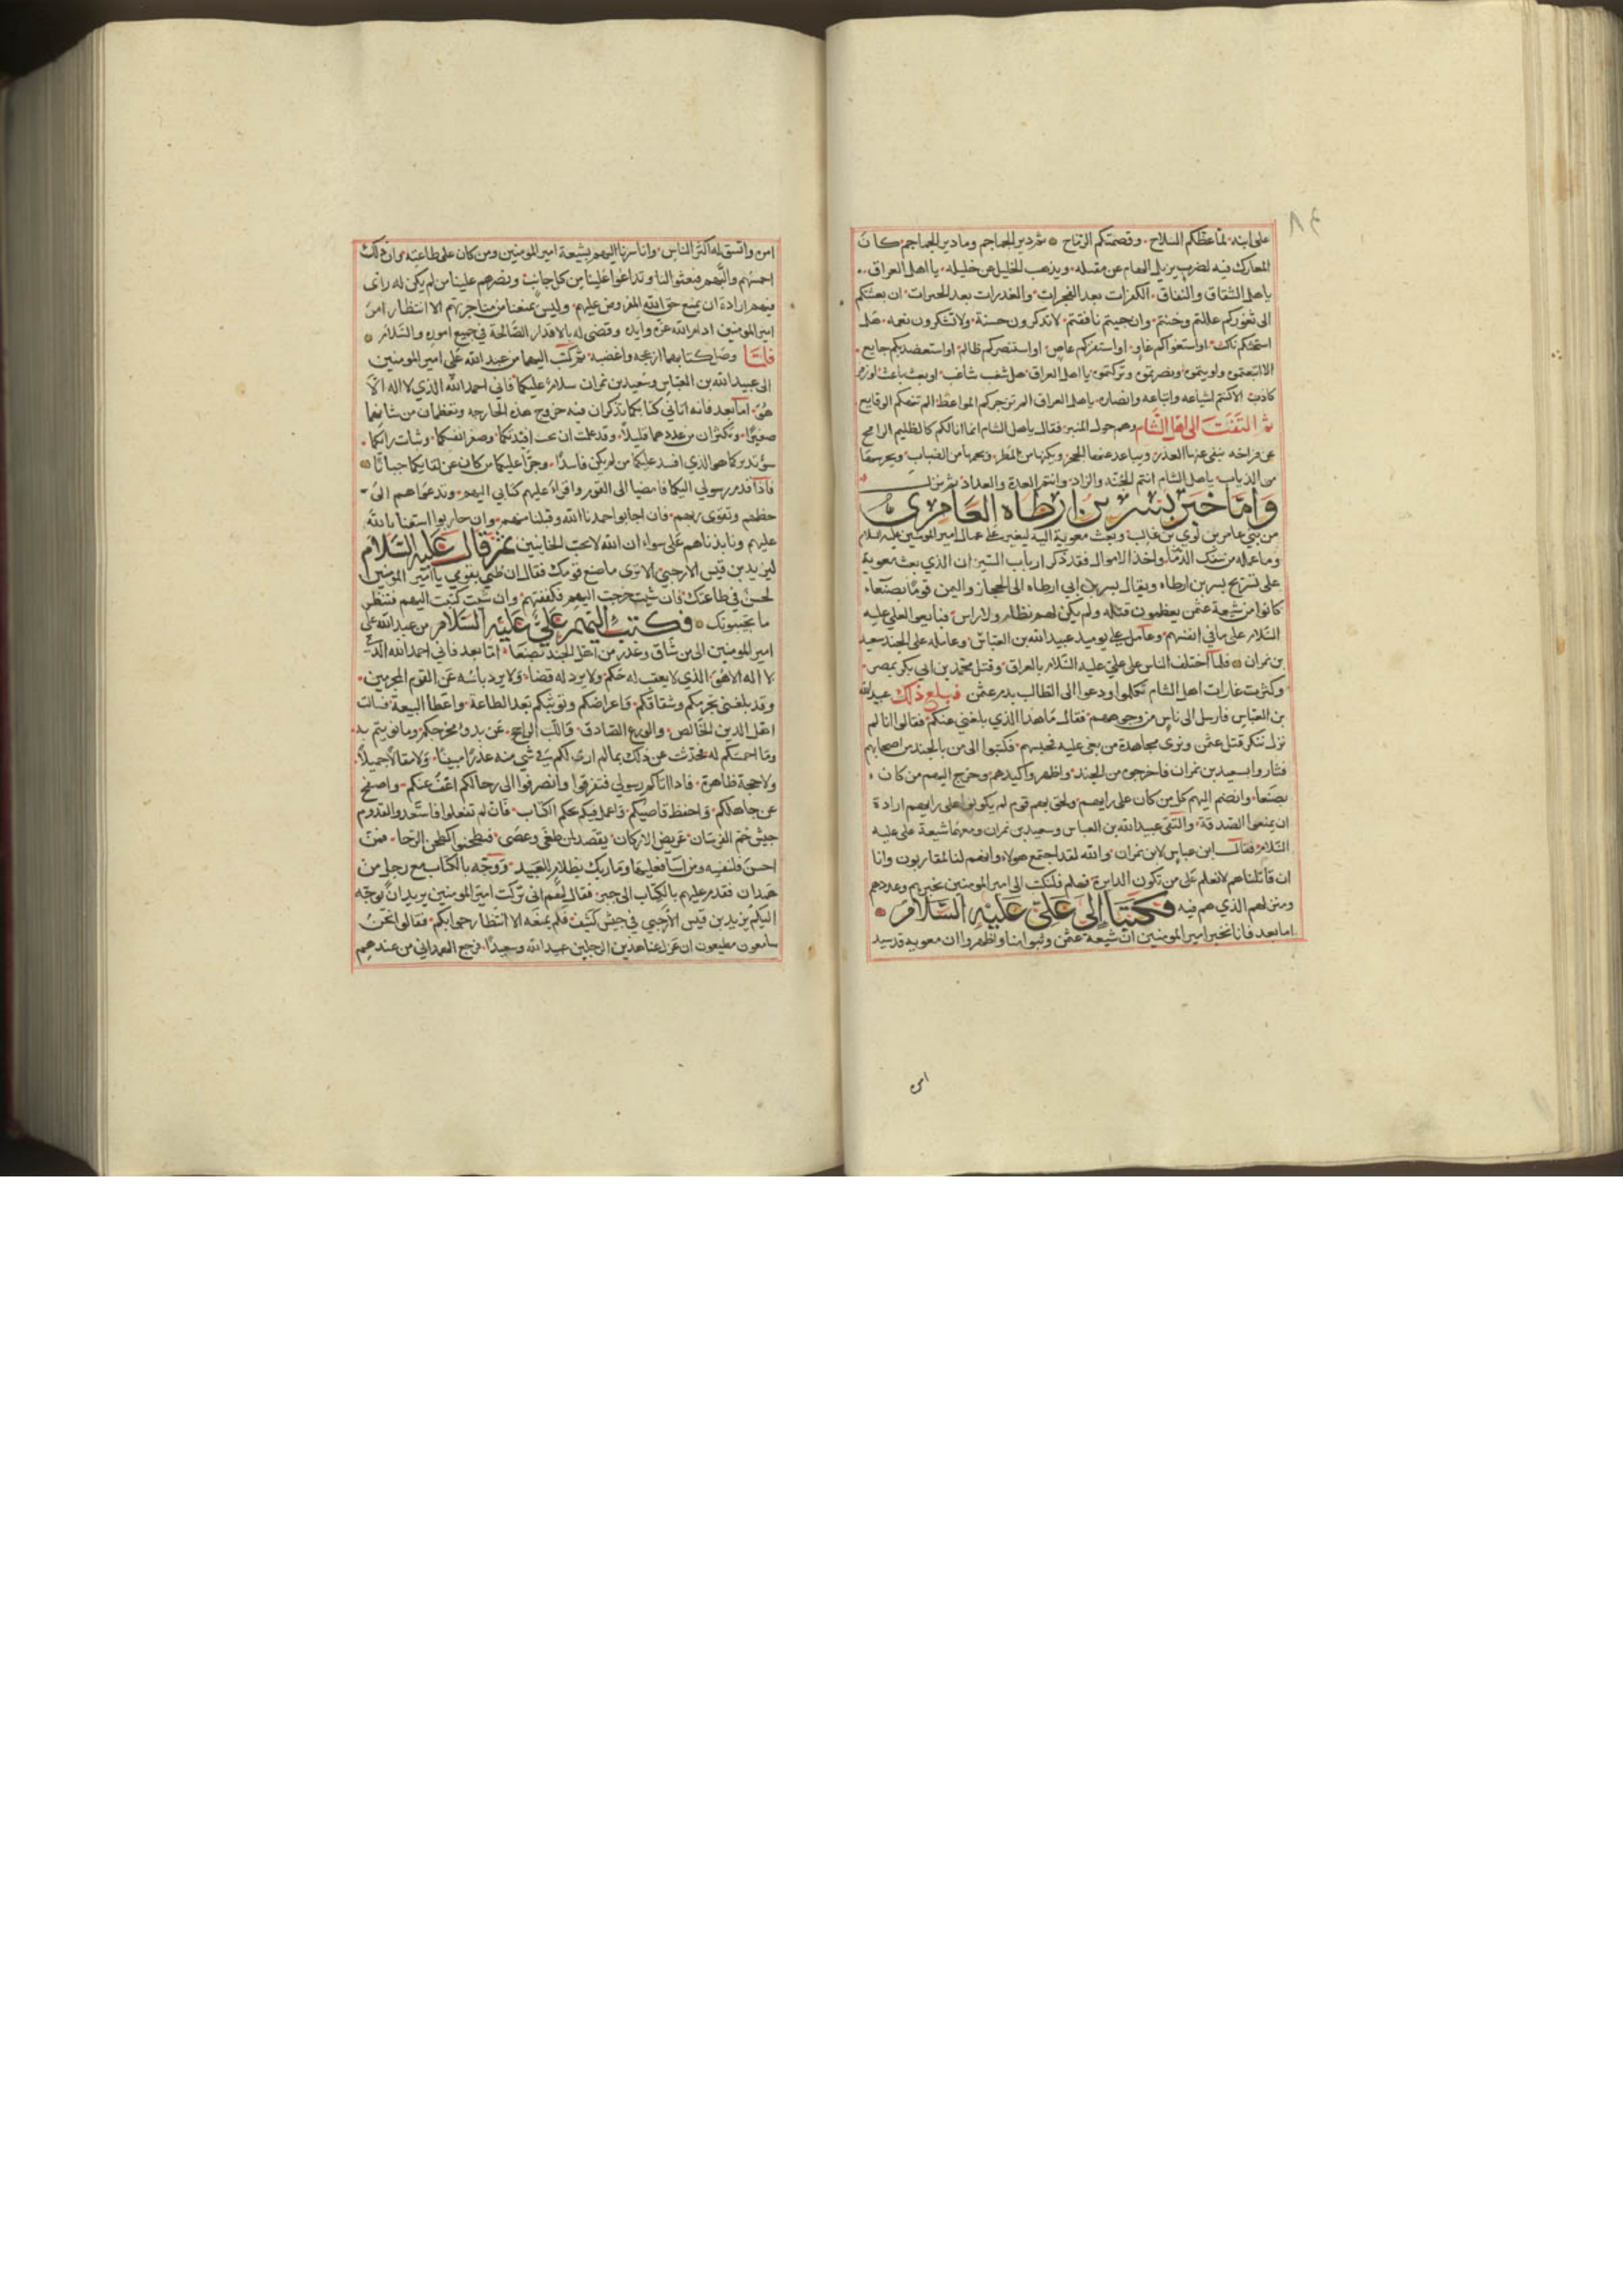 ٨٤
على ابنه لما عظكم السلاح وقصمتكم الرماح ثم دير الجماجم وما دير الجماجم كانت
المعارك فيه لضرب يزيل الهام عن مقيله ويذهب الخليل عن خليله يا اهل العراق
يا اهل الشقاق والنفاق الكفرات بعد الفجرات والغدرات بعد الخترات ان بعثتكم
الى ثغوركم عللتم وخنتم وان نافقتم لا تذكرون حسنة ولا تشكرون نعمه هل
استخفكم ناكث او استغواكم غاو او استفزكم عاص او استنصركم ظالم او استعضدكم خالع
الا اتبعتموه واويتموه ونصرتموه يا اهل العراق هل شغب شاغب او نعب ناعب او زفر
كاذب الا كنتم اشياعه واتباعه وانصاره يا اهل العراق الم تزجركم المواعظ الم تنهكم الوقايع
ثم التفت الى اهل الشام وهم حول المنبر فقال يا اهل الشام انما انا لكم كالظليم الرامح
عن فراخه ينفي عنها القذر ويباعد عنها الحجر ويكنها من المطر ويحميها من الضباب ويحرسها
من الذياب يا اهل الشام انتم الجنة والرداء وانتم العدة والغذاء ثم نزل
واما خبر بسر بن ارطاه العامري
من بني عامر بن لوي بن غالب وبعث معوية اليه ليغير على عمال امير المومنين عليه السلام
وما عمله من سفك الدما واخذ الاموال فقد ذكر ارباب السير ان الذي بعث معوية
على تسريح بسر بن ارطاه ويقال بسر بن ابي ارطاه الى الحجاز واليمن قوما بصنعاء
كانوا من شيعة عثمن يعظمون قتله ولم يكن لهم نظام ولا راس فبايعوا لعلي عليه
السلام على ما في انفسهم وعامل علي يوميذ عبيد الله بن العباس وعامله على الجند سعيد
بن نمران فلما اختلف الناس على علي عليه السلام بالعراق وقتل محمد بن ابي بكر بمصر
وكثرت غارات اهل الشام تكلموا ودعوا الى الطالب بدم عثمن فبلغ ذلك عبيد الله
بن العباس فارسل الى ناس من وجوههم فقال ما هذا الذي بلغني عنكم فقالوا انا لم
نزل ننكر قتل عثمن ونرى مجاهدة من بغى عليه فحبسهم فكتبوا الى من بالجند من اصحابهم
فثاروا بسعيد بن نمران فاخرجوه من الجند واظهروا وخرج اليهم من كان
بصنعا وانضم اليهم كل من كان على رايهم ولحق بهم قوم لم يكونوا على رايهم ارادة
ان يمنعوا الصدقة والتقى عبيد الله بن العباس وسعيد بن نمران ومعهما شيعة علي عليه
السلام فقال ابن عباس لابن نمران والله لقد اجتمع هولاء وانهم لنا لمقاربون وانا
ان قاتلناهم لا نعلم على من تكون الدايرة فهلم فلنكتب الى امير المومنين بخبرهم وعددهم
ومنزلهم الذي هم فيه فكتبا الى علي عليه السلام
اما بعد فانا نخبر امير المومنين ان شيعة عثمن وثبوا بنا واظهروا ان معوية قد شيد
امره
امره واتسق له اكثر الناس وانا سرنا اليهم بشيعة امير المومنين ومن كان على طاعته وان ذلك
احمشهم والبهم فتعبوا لنا وتداعوا علينا من كل جانب ونصرهم علينا من لم يكن له راى
فيهم ارادة ان يمنع حق الله المفروض عليه وليس يمنعنا من مناجزتهم الا انتظار امر
امير المومنين ادام الله عزه وايده وقضى له بالاقدار الصالحة في جميع اموره والسلام
فلما وصل كتابهما ازعجه واغضبه ثم كتب اليهما من عبد الله علي امير المومنين
الى عبيد الله بن العباس وسعيد بن نمران سلام عليكما فاني احمد الله الذي لا اله الا
هو اما بعد فانه اتاني كتابكما تذكران فيه خروج هذه الخارجه وتعظمان من شانها
صغيرا وتكثران من عددها قليلا وقد علمت ان نخب افيدتكما وصغر انفسكما وشتات رايكما
وسو تدبيركما هو الذي افسد عليكما من لم يكن فاسدا وجرا عليكما من كان عن لقايكما جبانا
فاذا قدم رسولي اليكما فامضيا الى القوم واقراء عليهم كتابي اليهم وتدعواهم الى
حظهم وتقوى ربهم فان اجابوا حمدنا الله وقبلنا منهم وان حاربوا استعنا بالله
عليهم ونابذناهم على سواء ان الله لا يحب الخاينين ثم قال عليه السلام
ليزيد بن قيس الارحبي الا ترى ما صنع قومك فقال ان ظني بقومي يا امير المومنين
لحسن في طاعتك فان شيت خرجت اليهم فكفيتهم وان شيت كتبت اليهم فتنظر
ما يجيبونك فكتب اليهم علي عليه السلام من عبد الله علي
امير المومنين الى من شاق وغدر من اهل الجند وصنعا اما بعد فاني احمد الله الذي
لا اله الا هو الذي لا يعقب له حكم ولا يرد له قضا ولا يرد باسه عن القوم المجرمين
وقد بلغني تجرمكم وشقاقكم واعراضكم وتوثبكم بعد الطاعة واعطا البيعة فسالت
اهل الدين الخالص والورع الصادق واللب الراجح عن بدو مخرجكم وما نويتم به
وما احمشكم له فحدثت عن ذلك بما لم ارى لكم في شي منه عذرا مبينا ولا مقالا جميلا
ولا حجة ظاهرة فاذا اتاكم رسولي فتفرقوا وانصرفوا الى رحالكم اعف عنكم واصفح
عن جاهلكم واحفظ قاصيكم واعمل فيكم بحكم الكتاب فان لم تفعلوا فاستعدوا لقدوم
جيش جم الفرسان عريض الاركان يقصد لمن طغى وعصى فتطحنوا كطحن الرحا فمن
احسن فلنفسه ومن اسا فعليها وما ربك بظلام للعبيد ووجه بالكتاب مع رجل من
همدان فقدم عليهم بالكتاب الى خبر فقال لهم اني تركت امير المومنين يريد ان يوجه
اليكم يزيد بن قيس الارحبي في جيش كثيف فلم يمنعه الا انتظار جوابكم فقالوا نحن
سامعون مطيعون ان عزل عنا هذين الرجلين عبيد الله وسعيدا فرجع الهمداني من عندهم